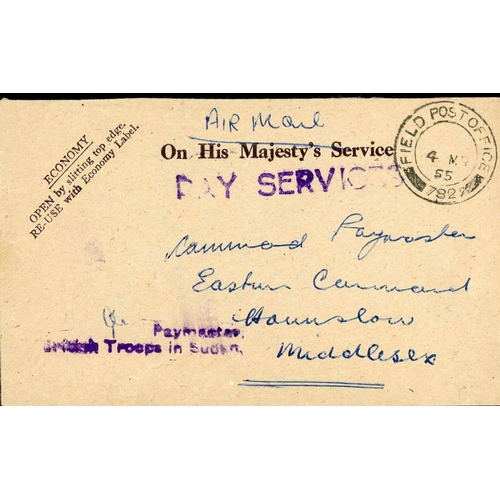 ECONOMY
OPEN by slitting top edge.
RE-USE with Economy Label.
AIR Mail
On His Majesty's Service
PAY SERVICES
FIELD POST OFFICE
4 MR
55
782
Command Paymaster
Eastern Command
Hounslow
Middlesex
Paymaster,
British Troops in Sudan,